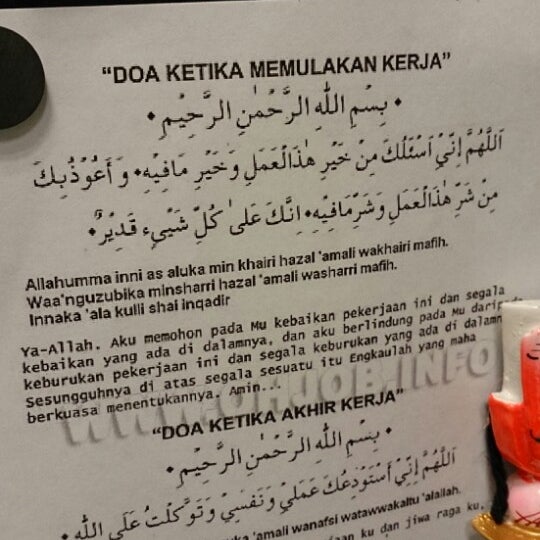 "DOA KETIKA MEMULAKAN KERJA"
• بِسْمِ اللهِ الرَّحْمٰنِ الرَّحِيْمِ •
اَللّٰهُمَّ اِنِّيْ اَسْئَلُكَ مِنْ خَيْرِ هٰذَالْعَمَلِ وَخَيْرِ مَافِيْهِ • وَ اَعُوْذُبِكَ
مِنْ شَرِّ هٰذَالْعَمَلِ وَشَرِّمَافِيْهِ • اِنَّكَ عَلىٰ كُلِّ شَيْىءٍ قَدِيْرٌ •
Allahumma inni as aluka min khairi hazal 'amali wakhairi mafih.
Waa'nguzubika minsharri hazal 'amali washarri mafih.
Innaka 'ala kulli shai inqadir
Ya-Allah. Aku memohon pada Mu kebaikan pekerjaan ini dan segala
kebaikan yang ada di dalamnya, dan aku berlindung pada Mu
keburukan pekerjaan ini dan segala keburukan yang ada di
Sesungguhnya di atas segala sesuatu itu Engkaulah yang maha
berkuasa menentukannya. Amin...
"DOA KETIKA AKHIR KERJA"
• بِسْمِ اللهِ الرَّحْمٰنِ الرَّحِيْمِ •
اَللّٰهُمَّ اِنِّيْ اَسْتَوْدِعُكَ عَمَلِيْ وَنَفْسِيْ وَتَوَكَّلْتُ عَلَى اللهِ •
'amali wanafsi watawwakaltu 'alallah.
ku dan jiwa raga ku,